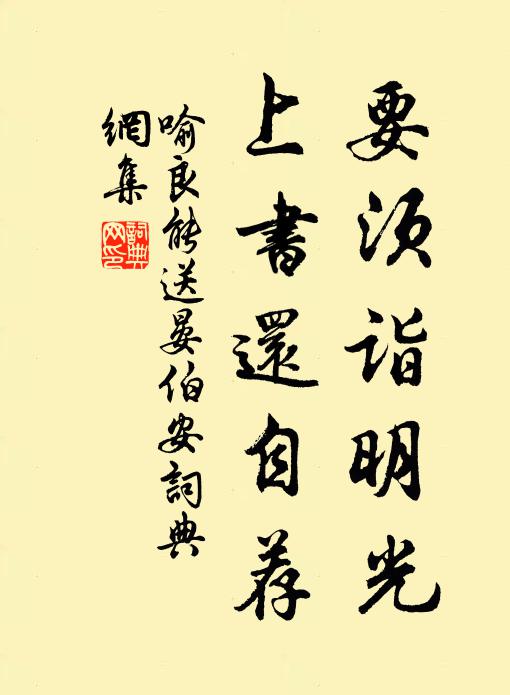 要须诣明光
上書還自荐
喻良能送晏伯安詞典
網集
詞典
网印